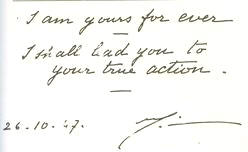 I am yours for ever
I shall lead you to
your true action.
26.10.47.